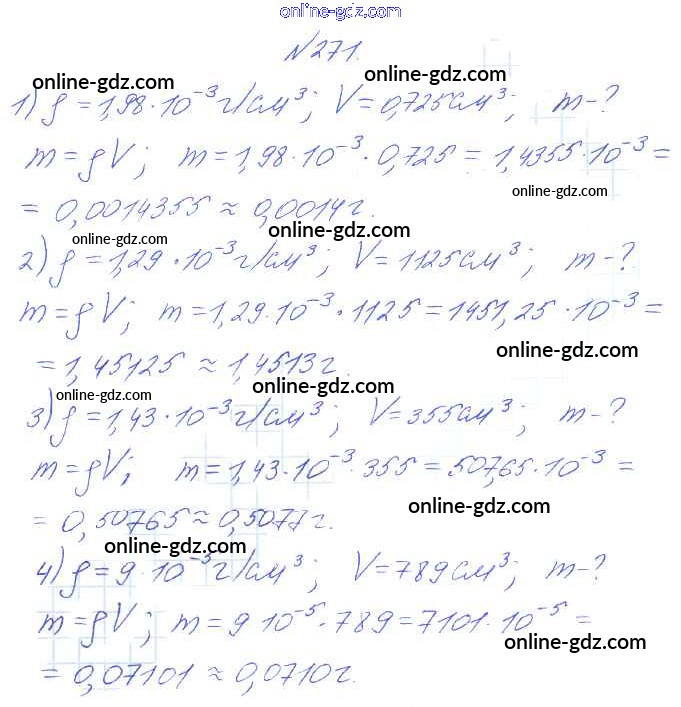 online-gdz.com
№271.
online-gdz.com
online-gdz.com
1) ρ = 1,98·10⁻³ г/см³; V=0,725см³; m-?
m=ρV; m=1,98·10⁻³·0,725=1,4355·10⁻³=
online-gdz.com
= 0,0014355 ≈ 0,0014г.
online-gdz.com
online-gdz.com
2) ρ = 1,29·10⁻³ г/см³; V=1125см³; m-?
m=ρV; m=1,29·10⁻³·1125=1451,25·10⁻³=
online-gdz.com
= 1,45125 ≈ 1,4513г.
online-gdz.com
online-gdz.com
3) ρ = 1,43·10⁻³ г/см³; V=355см³; m-?
m=ρV; m=1,43·10⁻³·355=507,65·10⁻³=
online-gdz.com
= 0,50765 ≈ 0,5077г.
online-gdz.com
4) ρ=9·10⁻⁵ г/см³; V=789см³; m-?
m=ρV; m=9·10⁻⁵·789=7101·10⁻⁵=
online-gdz.com
= 0,07101 ≈ 0,0710г.
online-gdz.com